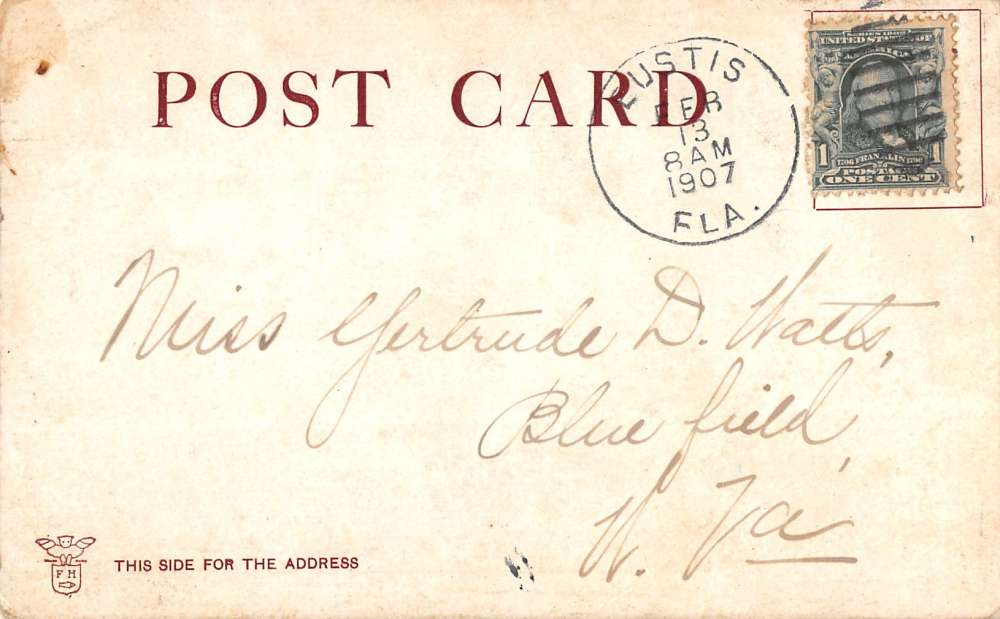 POST CARD
EUSTIS
FEB
13
8 AM
1907
FLA.
SERIES 1902
UNITED STATES OF
AMERICA
1 1706 FRANKLIN 1790 1
POSTAGE
ONE CENT
Miss Gertrude D. Watts,
Blue field,
W. Va
F H
THIS SIDE FOR THE ADDRESS